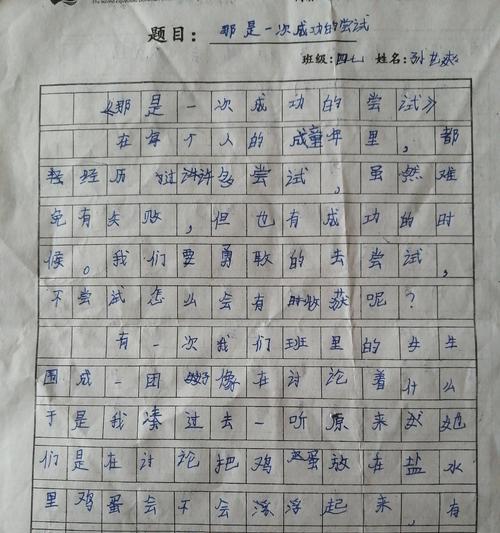 题目：那是一次成功的尝试
班级：四七 姓名：孙艺
《那是一次成功的尝试》
在每个人的成童年里，都
经历过许许多尝试，虽然难
免有失败，但也有成功的时
候。我们要勇敢的去尝试，
不尝试怎么会有收获呢？
有一次我们班里的女生
围成一团好像在讨论着什么
于是我凑过去一听原来她
们是在讨论把鸡蛋放在盐水
里鸡蛋会不会浮浮起来，有